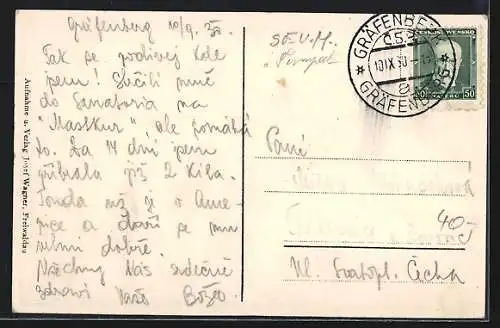 Gräfenberg 10/9. 30.
Tak se podívej kde
jsem! Strčili mně
do Sanatoria na
"Mastkur" ale pomáhá
to. Za 14 dní jsem
přibrala již 2 Kila.
Tonda už je v Ame-
rice a daří se mu
velmi dobře.
Všechny Vás srdečně
zdraví Vaše
Aufnahme u. Verlag Josef Wagner, Freiwaldau
GRÄFENBERG
Č.S.R.
10.IX.30
a
GRÄFENBERK
ČESKOSLOVENSKO
50 50
Paní
40-
Ul. Svatopl. Čecha